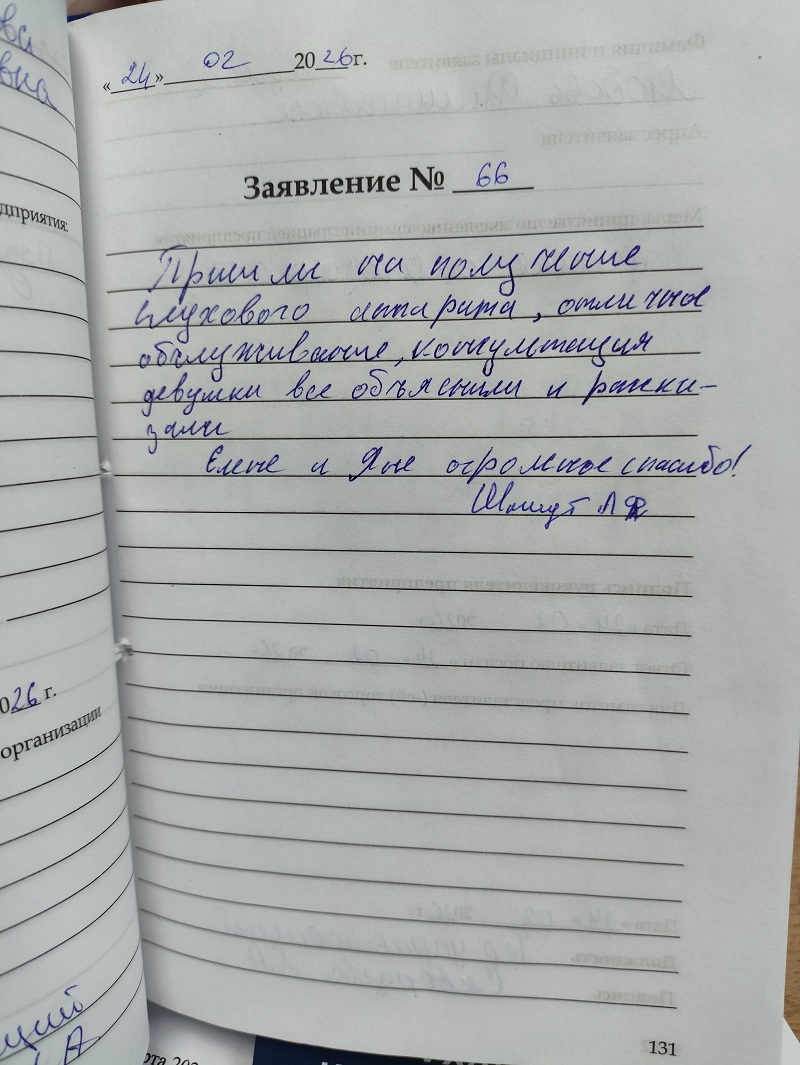 ва
вна
дприятия:
026 г.
организации
ций
А
«24» 02 2026г.
Заявление № 66
Пришли на получение
слухового аппарата, отличное
обслуживание, консультация
девушки все объяснили и расска-
зали
Елене и Яне огромное спасибо!
131